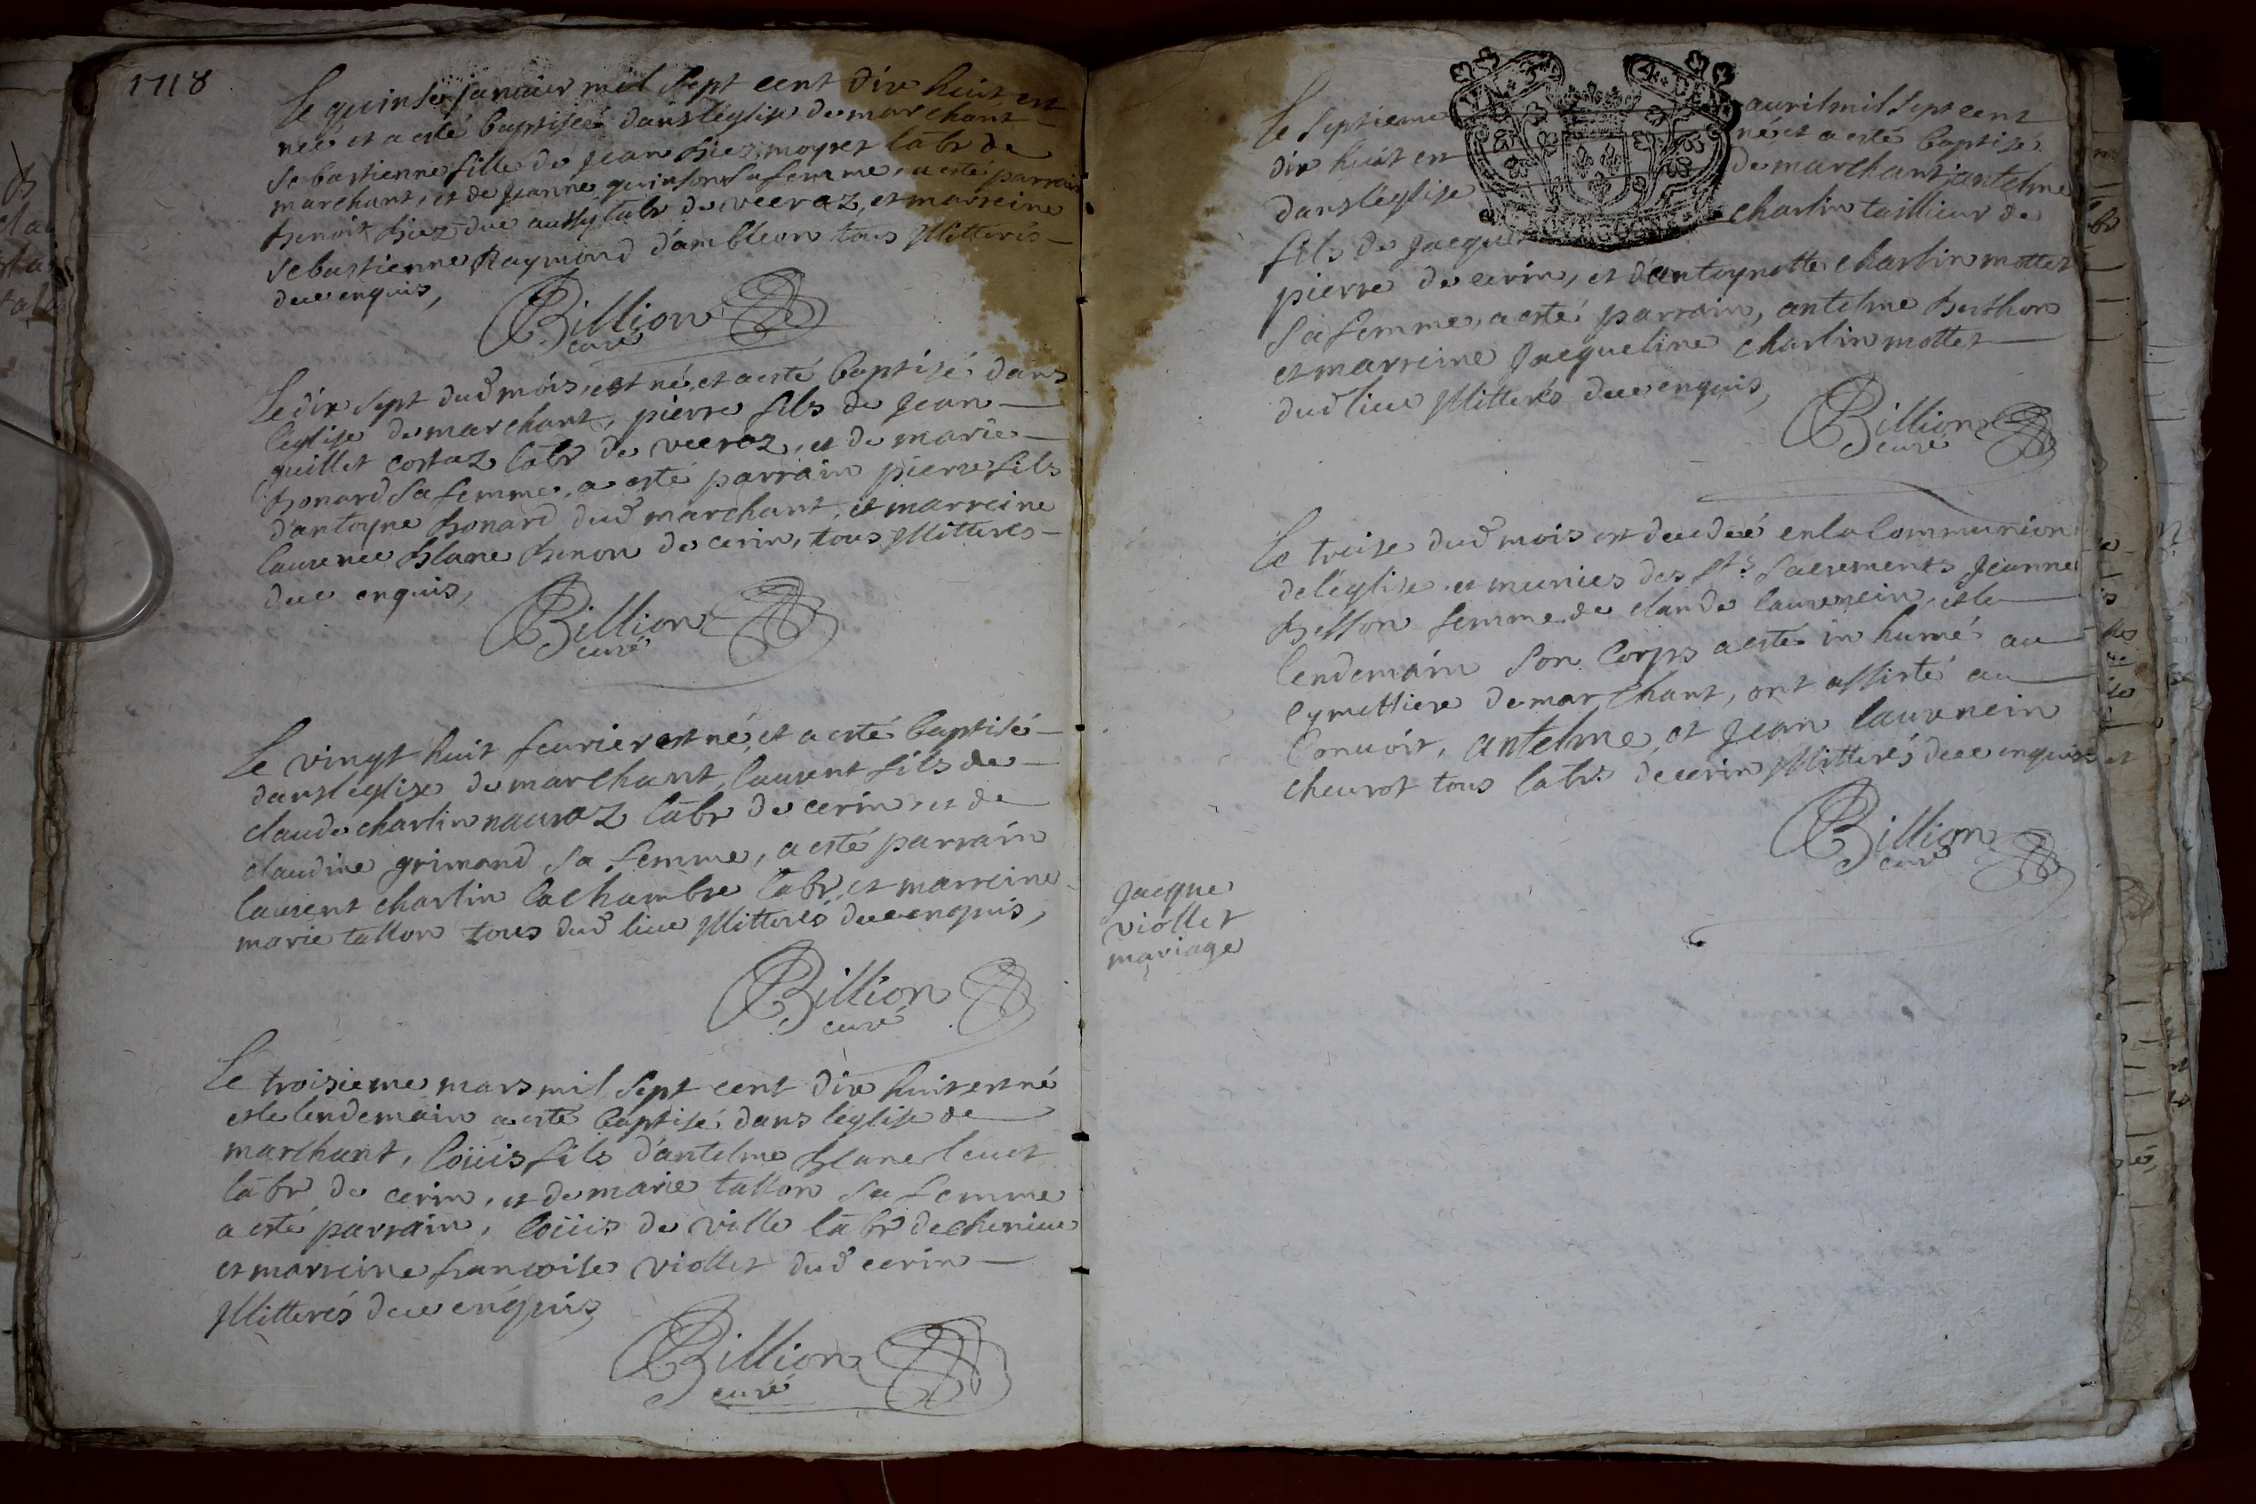 1718
Le quinse janvier mil sept cent dix huit est
née et a esté baptisée dans l'église de marchant
sebastienne fille de jean biez moyret labr de
marchant, et de jeanne quinson sa femme, a esté parrain
benoit biez due aussy labr de veeraz, et marreine
sebastienne Raymond d'ambleon tous illitterés
dece enquis,
Billion
curé
Le dix sept dud mois, est né, et a esté baptisé dans
l'eglise de marchant, pierre fils de jean
guillet costaz labr de veeraz, et de marie
bonard sa femme, a esté parrain pierre fils
d'antoyne bonard dud marchant, et marreine
laurence blanc benon de cerin, tous illitterés
dece enquis,
Billion
curé
Le vingt huit feurier est né, et a esté baptisé
dans l'église de marchant, laurent fils de
claude charlin nauroz labr de cerin, et de
claudine grimond sa femme, a esté parrain
laurent charlin lachambre labr, et marreine
marie tallon tous dud lieu illitterés dece enquis,
Billion
curé
Le troisieme mars mil sept cent dix huit est né
et le lendemain a esté baptisé dans l'église de
marchant, loüis fils d'antelme blanc leuet
labr de cerin, et de marie tallon sa femme
a esté parrain, loüis de ville labr de
et marreine francoise viollet dud cerin
illitterés dece enquis,
Billion
curé
Le septieme avril mil sept cent
dix huit est né et a esté baptisé
dans l'église de marchant antelme
fils de jacque charlin taillieur de
pierre de cerin, et d'antoynette charlin mottet
sa femme, a esté parrain, antelme berthon
et marreine jacqueline charlin mottet
dud lieu illitterés dece enquis,
Billion
curé
Le treise dud mois est decedeé en la Communion
de l'église et munies des Sts Sacrements jeanne
besson femme de claude laurencin, et le
lendemain son corps a esté inhumé au
cymettiere de marchant, ont assisté au
convoir, antelme, et jean laurencin
cheurot tous labrs de cerin illitterés dece enquis et
Billion
curé
jacque
viollet
mariage